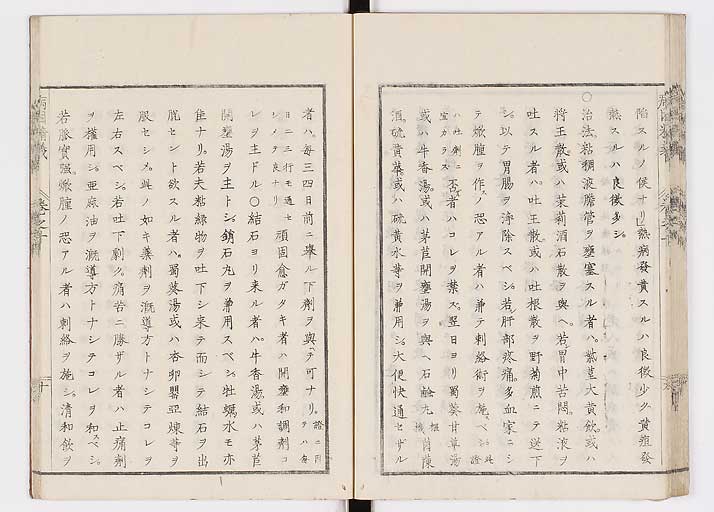 陷スルノ候ナリ熱病發黄スルハ良徴少ク黄疸發
熱スルハ良徴多シ
○治法粘稠液膽管ヲ壅塞スル者ハ紫莖大黄飲或ハ
將王散或ハ茉莉酒石散ヲ與ヘ若胃中苦悶粘液ヲ
吐スル者ハ吐王散或ハ吐根散ヲ野菊煎ニテ送下
シ以テ胃腸ヲ淨除スベシ若肝部疼痛多血家ニシ
テ焮腫ヲ作スノ恐アル者ハ兼テ刺絡術ヲ施スベシ此證
ハ吐劑ニ宜カラス否者ハコレヲ禁ス翌日ヨリ蜀葵甘草湯
或ハ牛香湯或ハ茅苣開壅湯ヲ與ヘ石鹼丸茵蔯
酒硫黄藥或ハ硫黄水等ヲ兼用シ大便快通セザル
者ハ毎三四日前ニ擧ル下劑ヲ與ヘテ可ナリ證ニ因テハ毎
日ニ三行モ通セシメテ良トナリ頑固愈ガタキ者ハ開壅和調劑コ
レヲ主ドル○結石ヨリ來ル者ハ牛香湯或ハ茅苣
開壅湯ヲ主トシ銷石丸ヲ兼用スベシ牡蠣水モ亦
佳ナリ若夫粘緑物ヲ吐下シ來テ而シテ結石ヲ出
脱セント欲スル者ハ蜀葵湯或ハ杏卵罌亞煉等ヲ
服セシメ此ノ如キ藥劑ヲ漑導方トナシテコレヲ
左右スベシ若吐下劇ク痛苦ニ勝ザル者ハ止痛劑
ヲ權用シ亜麻油ヲ漑導方トナシテコレヲ和スベシ
若脈實强焮腫ノ恐アル者ハ刺絡ヲ施シ清和飲ヲ
十